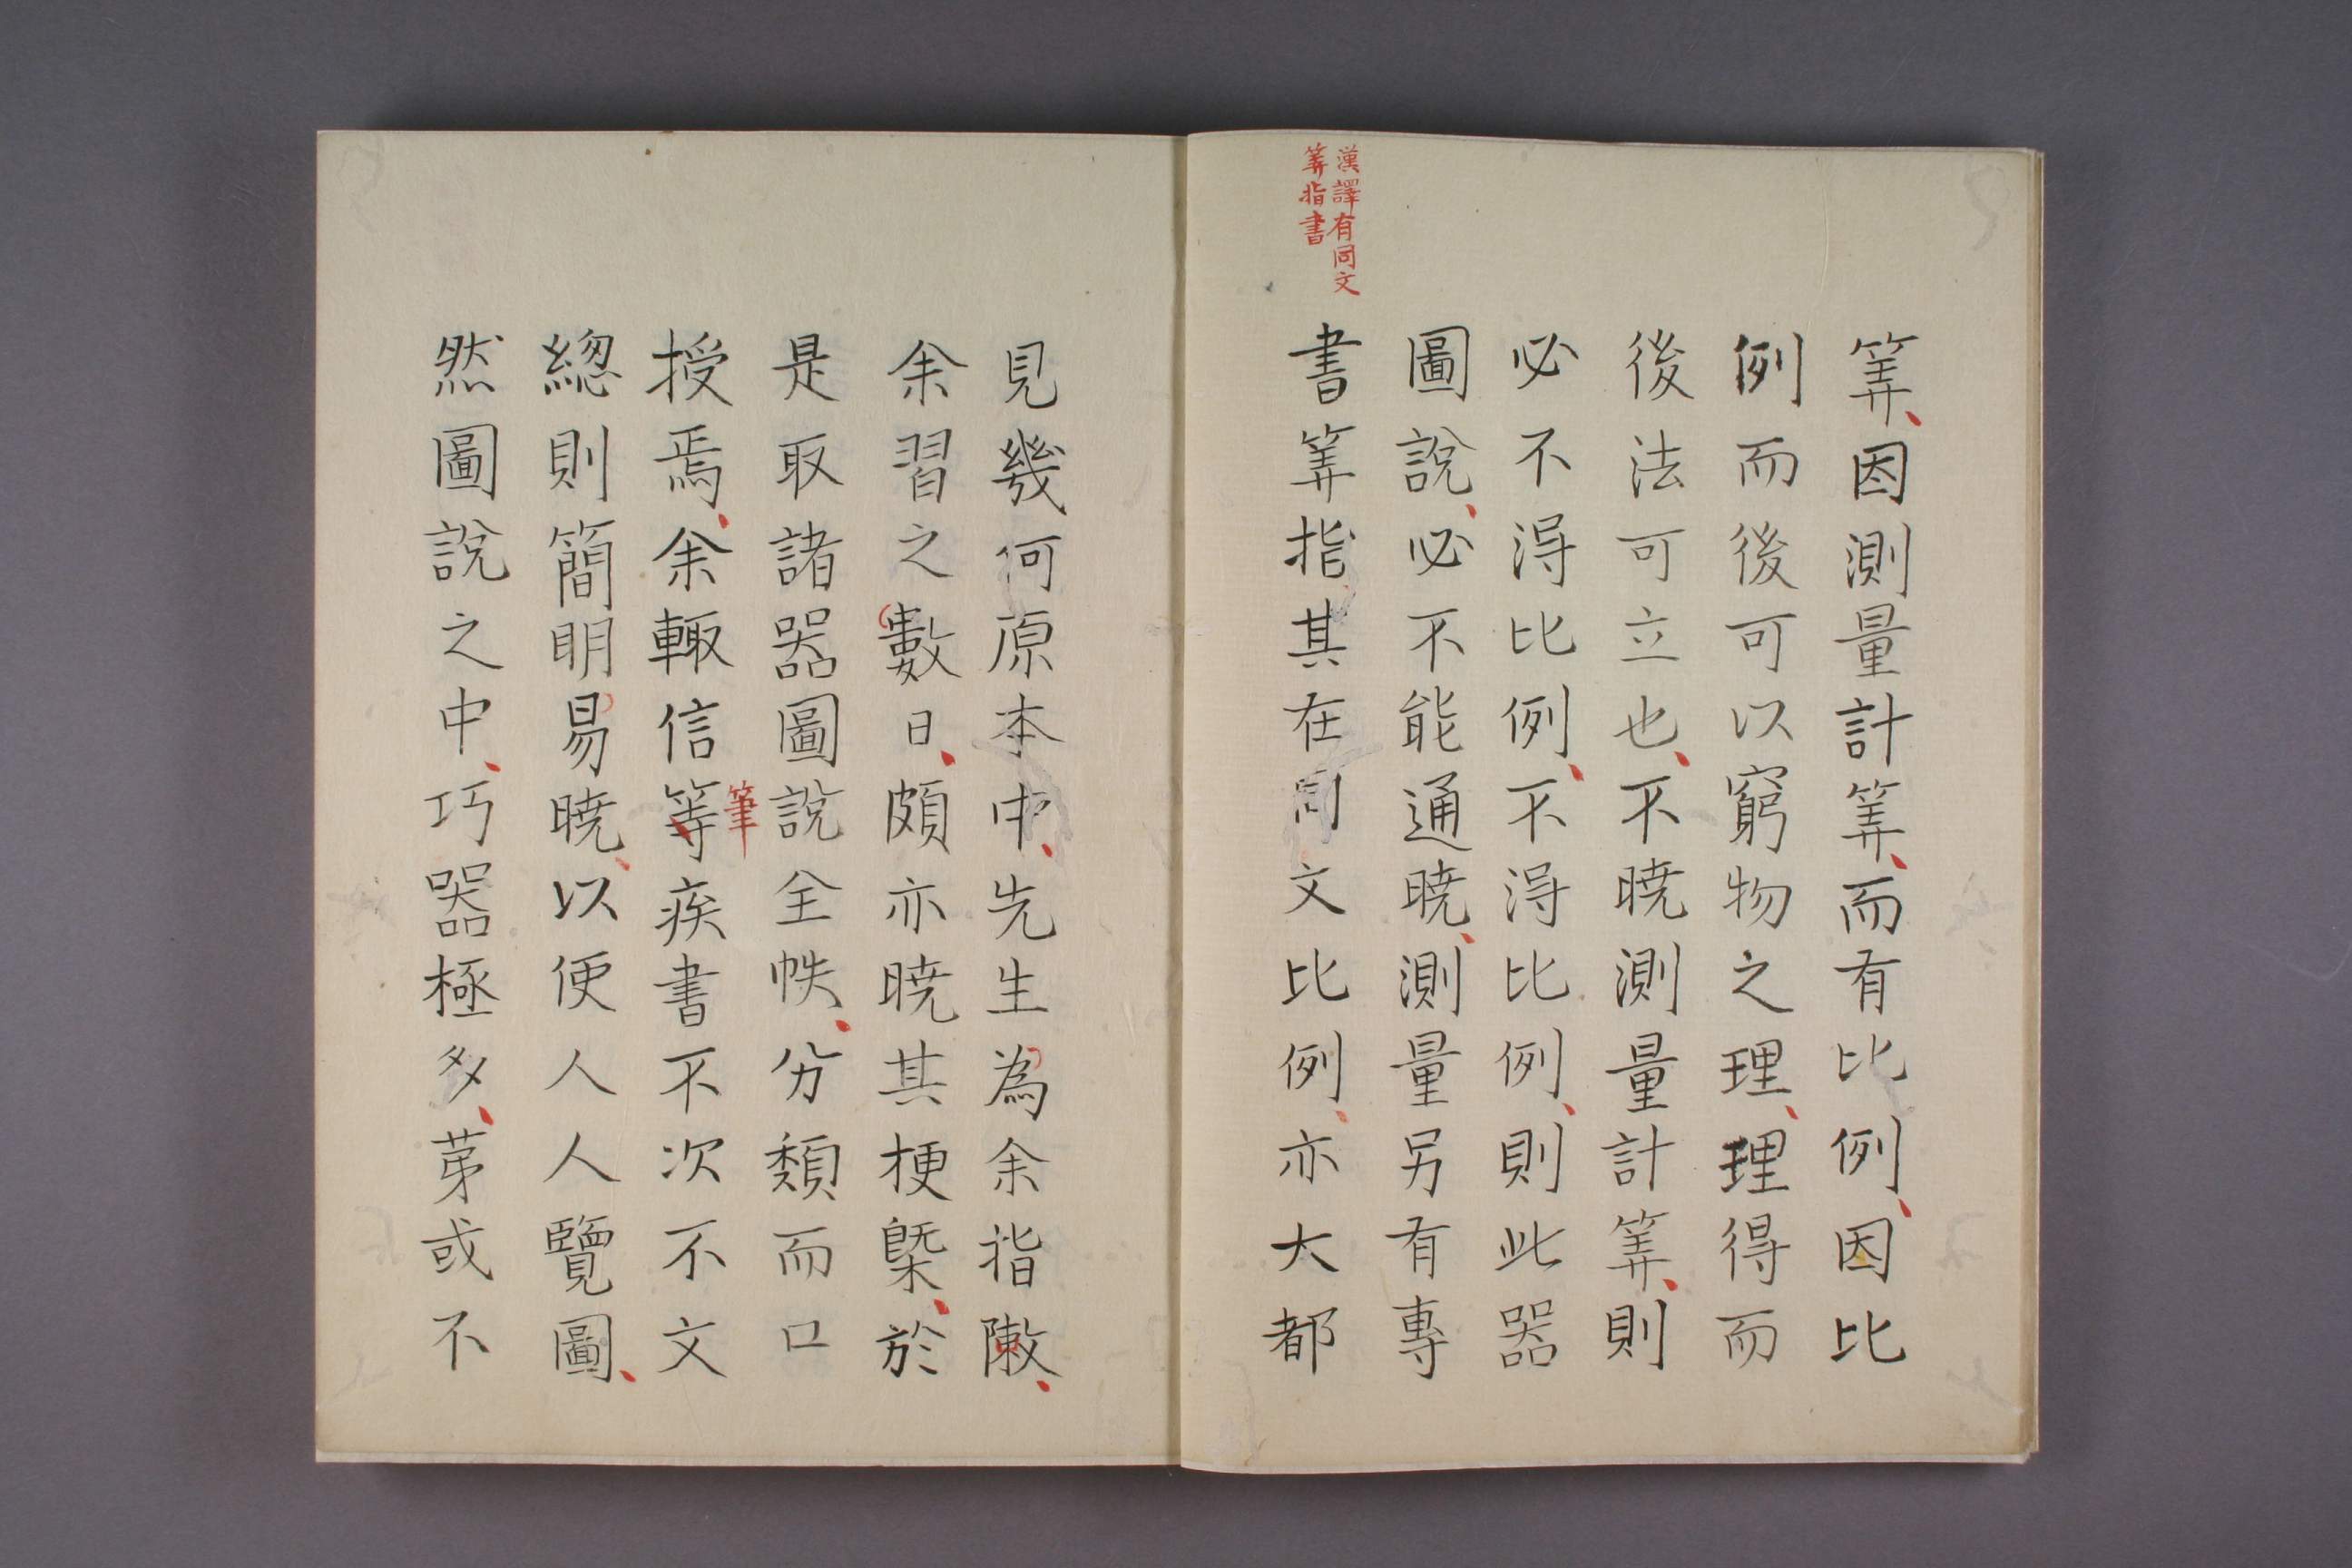 漢譯有同文
筭指書
筭、因測量計筭、而有比例、因比
例而後可以窮物之理、理得而
後法可立也、不曉測量計筭、則
必不得比例、不得比例、則此器
圖說、必不能通曉、測量另有專
書筭指、其在同文比例、亦大都
見幾何原本中、先生為余指陳、
余習之數日、頗亦曉其梗槩、於
是取諸器圖說全帙、分類而口
授焉、余輙信等疾書不次不文
筆
緫則簡明易曉、以便人人覽圖、
然圖說之中、巧器極多、苐或不